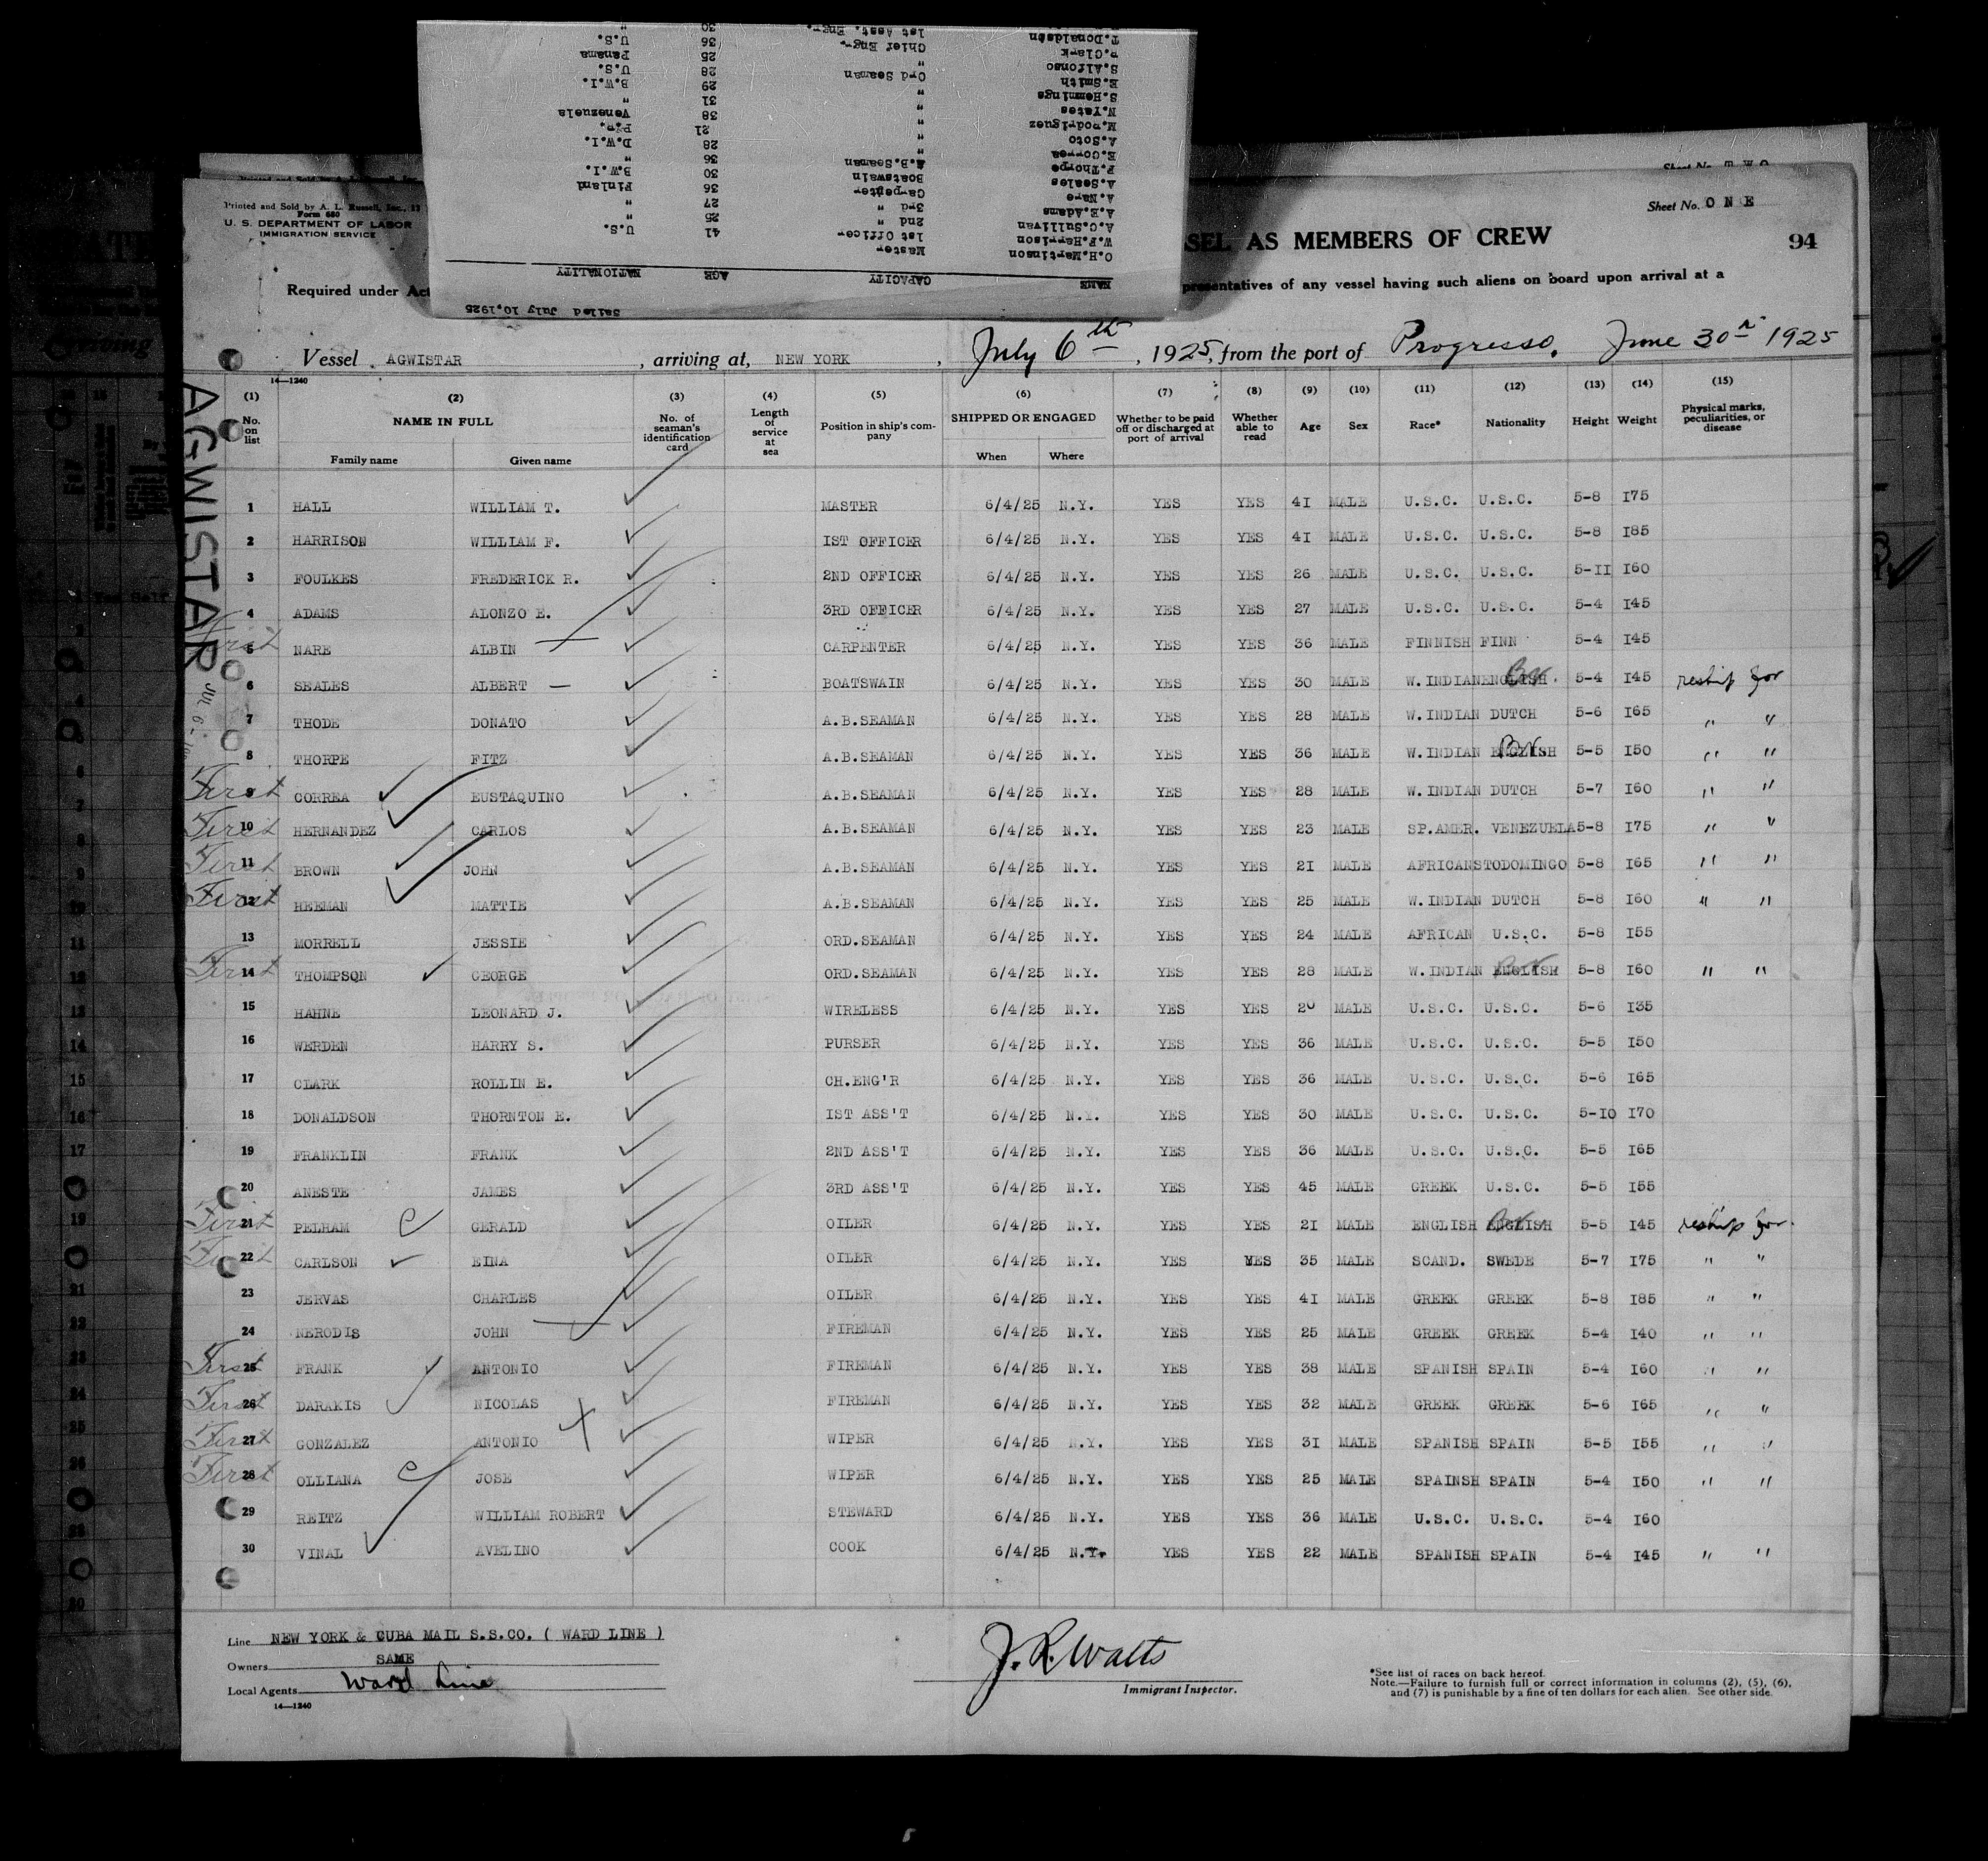 Sailed July 10,1925
NAME CAPACITY AGE NATIONALITY
O.H.Martinson Master 41 U.S.
W.F.Harrison 1st Officer 25 "
A.C.Sullivan 2nd " 27 "
A.E.Adams 3rd " 36 Finland
A.Nare Carpenter 30 B.W.I.
A.Seales Boatswain 36 "
F.Thorpe A.B.Seaman 28 D.W.I.
E.Correa " 21 P.R.
A.Soto " 38 Venezuela
M.Rodriguez " 31 "
N.Yates " 29 B.W.I.
S.Hemmings " 28 U.S.
E.Smith Ord Seaman 25 Panama
S.Alfonso " 36 U.S.
P.Clark Chief Engr. 30 "
T.Donaldson 1st Asst. Engr.
Sheet No. TWO
Printed and Sold by A. L. Russell, Inc., 12
Form 680
U. S. DEPARTMENT OF LABOR
IMMIGRATION SERVICE
Sheet No. ONE
SEL AS MEMBERS OF CREW 94
Required under Act presentatives of any vessel having such aliens on board upon arrival at a
Vessel AGWISTAR, arriving at, NEW YORK, July 6th, 1925, from the port of Progresso. June 30th 1925
14—1240
AGWISTAR
JUL 6 -
(1) (2) (3) (4) (5) (6) (7) (8) (9) (10) (11) (12) (13) (14) (15)
No. on list NAME IN FULL No. of seaman's identification card Length of service at sea Position in ship's company SHIPPED OR ENGAGED Whether to be paid off or discharged at port of arrival Whether able to read Age Sex Race* Nationality Height Weight Physical marks, peculiarities, or disease
Family name Given name When Where
1 HALL WILLIAM T. MASTER 6/4/25 N.Y. YES YES 41 MALE U.S.C. U.S.C. 5-8 175
2 HARRISON WILLIAM F. IST OFFICER 6/4/25 N.Y. YES YES 41 MALE U.S.C. U.S.C. 5-8 185
3 FOULKES FREDERICK R. 2ND OFFICER 6/4/25 N.Y. YES YES 26 MALE U.S.C. U.S.C. 5-11 160
4 ADAMS ALONZO E. 3RD OFFICER 6/4/25 N.Y. YES YES 27 MALE U.S.C. U.S.C. 5-4 145
First 5 NARE ALBIN CARPENTER 6/4/25 N.Y. YES YES 36 MALE FINNISH FINN 5-4 145
6 SEALES ALBERT — BOATSWAIN 6/4/25 N.Y. YES YES 30 MALE W.INDIAN ENGLISH Br. 5-4 145 reship for
7 THODE DONATO A.B.SEAMAN 6/4/25 N.Y. YES YES 28 MALE W.INDIAN DUTCH 5-6 165 " "
8 THORPE FITZ A.B.SEAMAN 6/4/25 N.Y. YES YES 36 MALE W.INDIAN ENGLISH Br. 5-5 150 " "
First 9 CORREA EUSTAQUINO A.B.SEAMAN 6/4/25 N.Y. YES YES 28 MALE W.INDIAN DUTCH 5-7 160 " "
First 10 HERNANDEZ CARLOS A.B.SEAMAN 6/4/25 N.Y. YES YES 23 MALE SP.AMER. VENEZUELA 5-8 175 " "
First 11 BROWN JOHN A.B.SEAMAN 6/4/25 N.Y. YES YES 21 MALE AFRICAN STODOMINGO 5-8 165 " "
First 12 HEEMAN MATTIE A.B.SEAMAN 6/4/25 N.Y. YES YES 25 MALE W.INDIAN DUTCH 5-8 160 " "
13 MORRELL JESSIE ORD.SEAMAN 6/4/25 N.Y. YES YES 24 MALE AFRICAN U.S.C. 5-8 155
First 14 THOMPSON GEORGE ORD.SEAMAN 6/4/25 N.Y. YES YES 28 MALE W.INDIAN ENGLISH Br. 5-8 160 " "
15 HAHNE LEONARD J. WIRELESS 6/4/25 N.Y. YES YES 20 MALE U.S.C. U.S.C. 5-6 135
16 WERDEN HARRY S. PURSER 6/4/25 N.Y. YES YES 36 MALE U.S.C. U.S.C. 5-5 150
17 CLARK ROLLIN E. CH.ENG'R 6/4/25 N.Y. YES YES 36 MALE U.S.C. U.S.C. 5-6 165
18 DONALDSON THORNTON E. IST ASS'T 6/4/25 N.Y. YES YES 30 MALE U.S.C. U.S.C. 5-10 170
19 FRANKLIN FRANK 2ND ASS'T 6/4/25 N.Y. YES YES 36 MALE U.S.C. U.S.C. 5-5 165
20 ANESTE JAMES 3RD ASS'T 6/4/25 N.Y. YES YES 45 MALE GREEK U.S.C. 5-5 155
First 21 PELHAM GERALD OILER 6/4/25 N.Y. YES YES 21 MALE ENGLISH ENGLISH Br. 5-5 145 reship for
First 22 CARLSON EINA OILER 6/4/25 N.Y. YES YES 35 MALE SCAND. SWEDE 5-7 175 " "
23 JERVAS CHARLES OILER 6/4/25 N.Y. YES YES 41 MALE GREEK GREEK 5-8 185 " "
24 NERODIS JOHN FIREMAN 6/4/25 N.Y. YES YES 25 MALE GREEK GREEK 5-4 140 " "
First 25 FRANK ANTONIO FIREMAN 6/4/25 N.Y. YES YES 38 MALE SPANISH SPAIN 5-4 160 " "
First 26 DARAKIS NICOLAS FIREMAN 6/4/25 N.Y. YES YES 32 MALE GREEK GREEK 5-6 165 " "
First 27 GONZALEZ ANTONIO WIPER 6/4/25 N.Y. YES YES 31 MALE SPANISH SPAIN 5-5 155 " "
First 28 OLLIANA JOSE WIPER 6/4/25 N.Y. YES YES 25 MALE SPAINSH SPAIN 5-4 150 " "
29 REITZ WILLIAM ROBERT STEWARD 6/4/25 N.Y. YES YES 36 MALE U.S.C. U.S.C. 5-4 160
30 VINAL AVELINO COOK 6/4/25 N.Y. YES YES 22 MALE SPANISH SPAIN 5-4 145 " "
Line NEW YORK & CUBA MAIL S.S.CO. ( WARD LINE )
Owners SAME
Local Agents Ward Line
14—1240
J. R. Watts
Immigrant Inspector.
*See list of races on back hereof.
Note.—Failure to furnish full or correct information in columns (2), (5), (6),
and (7) is punishable by a fine of ten dollars for each alien. See other side.